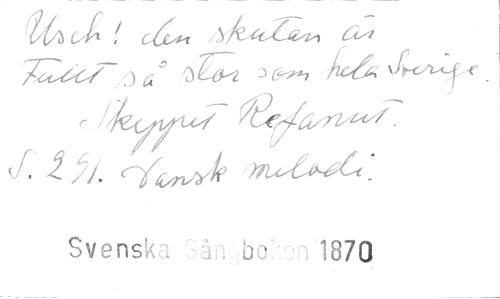 Usch! den skutan är
Fullt så stor som hela Sverige.
Skeppet Refanut.
S. 291. Dansk melodi.
Svenska Sångboken 1870